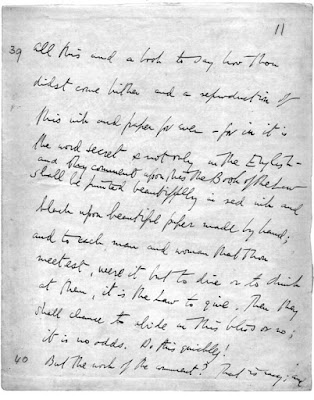 11
39 All this and a book to say how Thou
didst come hither and a reproduction of
this ink and paper for ever - for in it is
the word secret & not only in the English -
and thy comment upon this the Book of the Law
shall be printed beautifully in red ink and
black upon beautiful paper made by hand;
and to each man and woman that Thou
meetest, were it but to dine or to drink
at them, it is the Law to give. Then they
shall chance to abide in this bliss or no;
it is no odds. Do this quickly!
40 But the work of the comment? That is easy; and